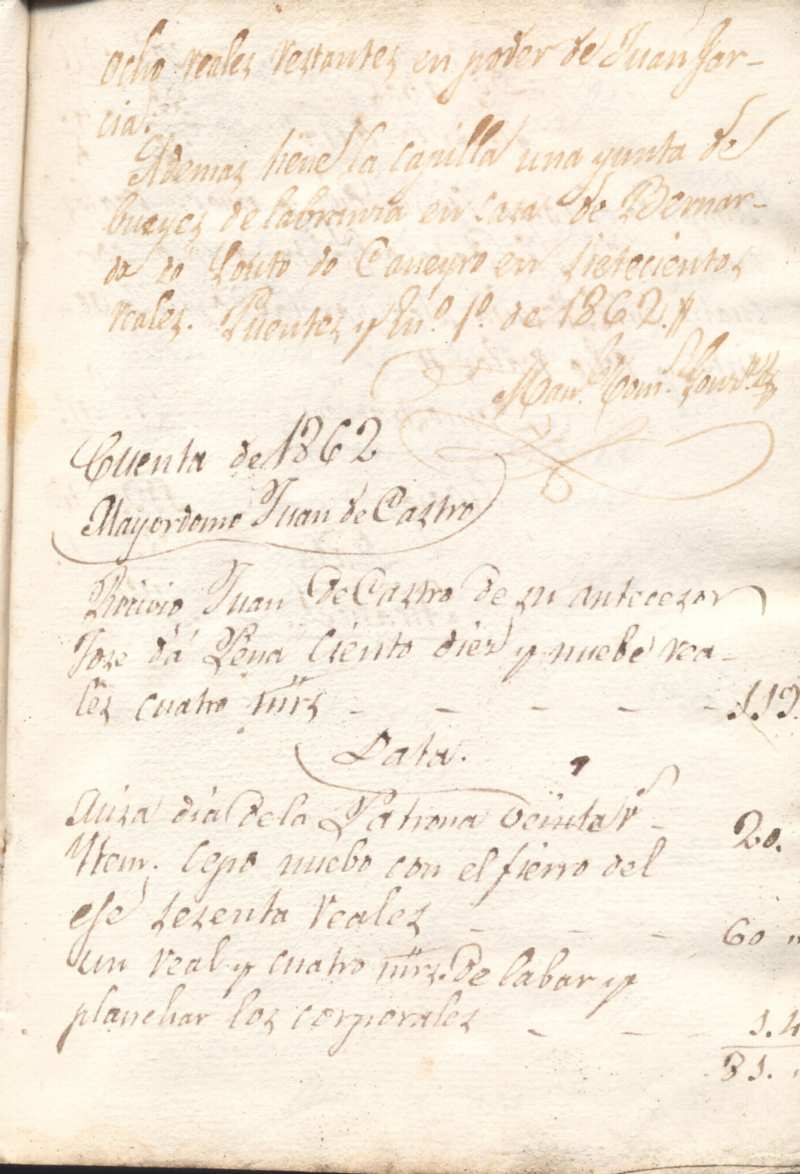 ocho reales restantes en poder de Juan Gar-
cia.
Ademas tiene la capilla una yunta de
bueyes de labranza en casa de Bernar-
da do Souto do Caneyro en sietecientos
reales. Puentes y En.º 1º de 1862.
Man.l Com.
Cuenta de 1862
Mayordomo Juan de Castro
Recivio Juan de Castro de su antecesor
Jose da Pena ciento diez y nuebe rea-
les cuatro mrs - - - - - 119.
Data.
Misa dia de la Patrona veinte r.s - 20.
Ytem. cepo nuebo con el fierro del
ese sesenta reales - - - 60
un real y cuatro mrs. de labar y
planchar los corporales - - - 1.4
81.